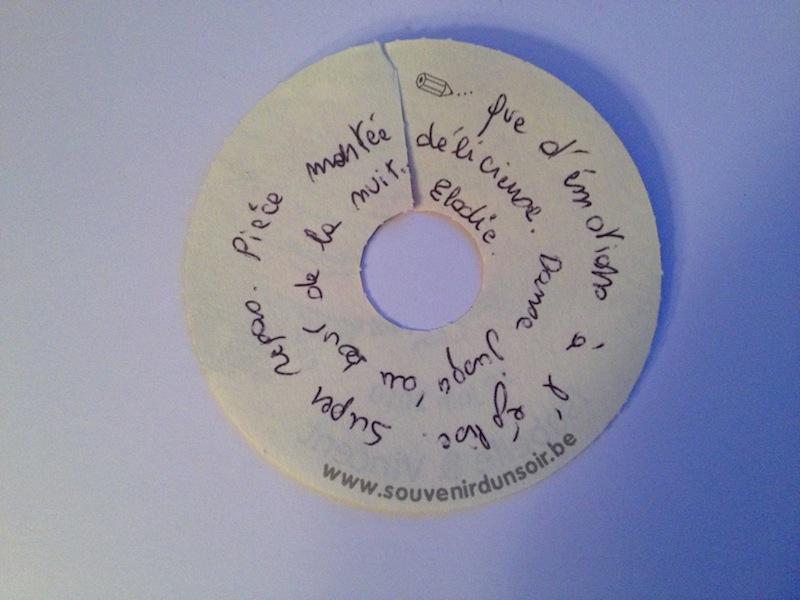 ... Que d'émotions à l'église. Super repas. Pièce montée
délicieuse. Danse jusqu'au bout de la nuit..
Elodie.
www.souvenirdunsoir.be